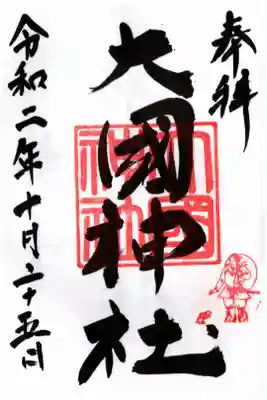 奉拝
大國神社
令和二年十月二十五日